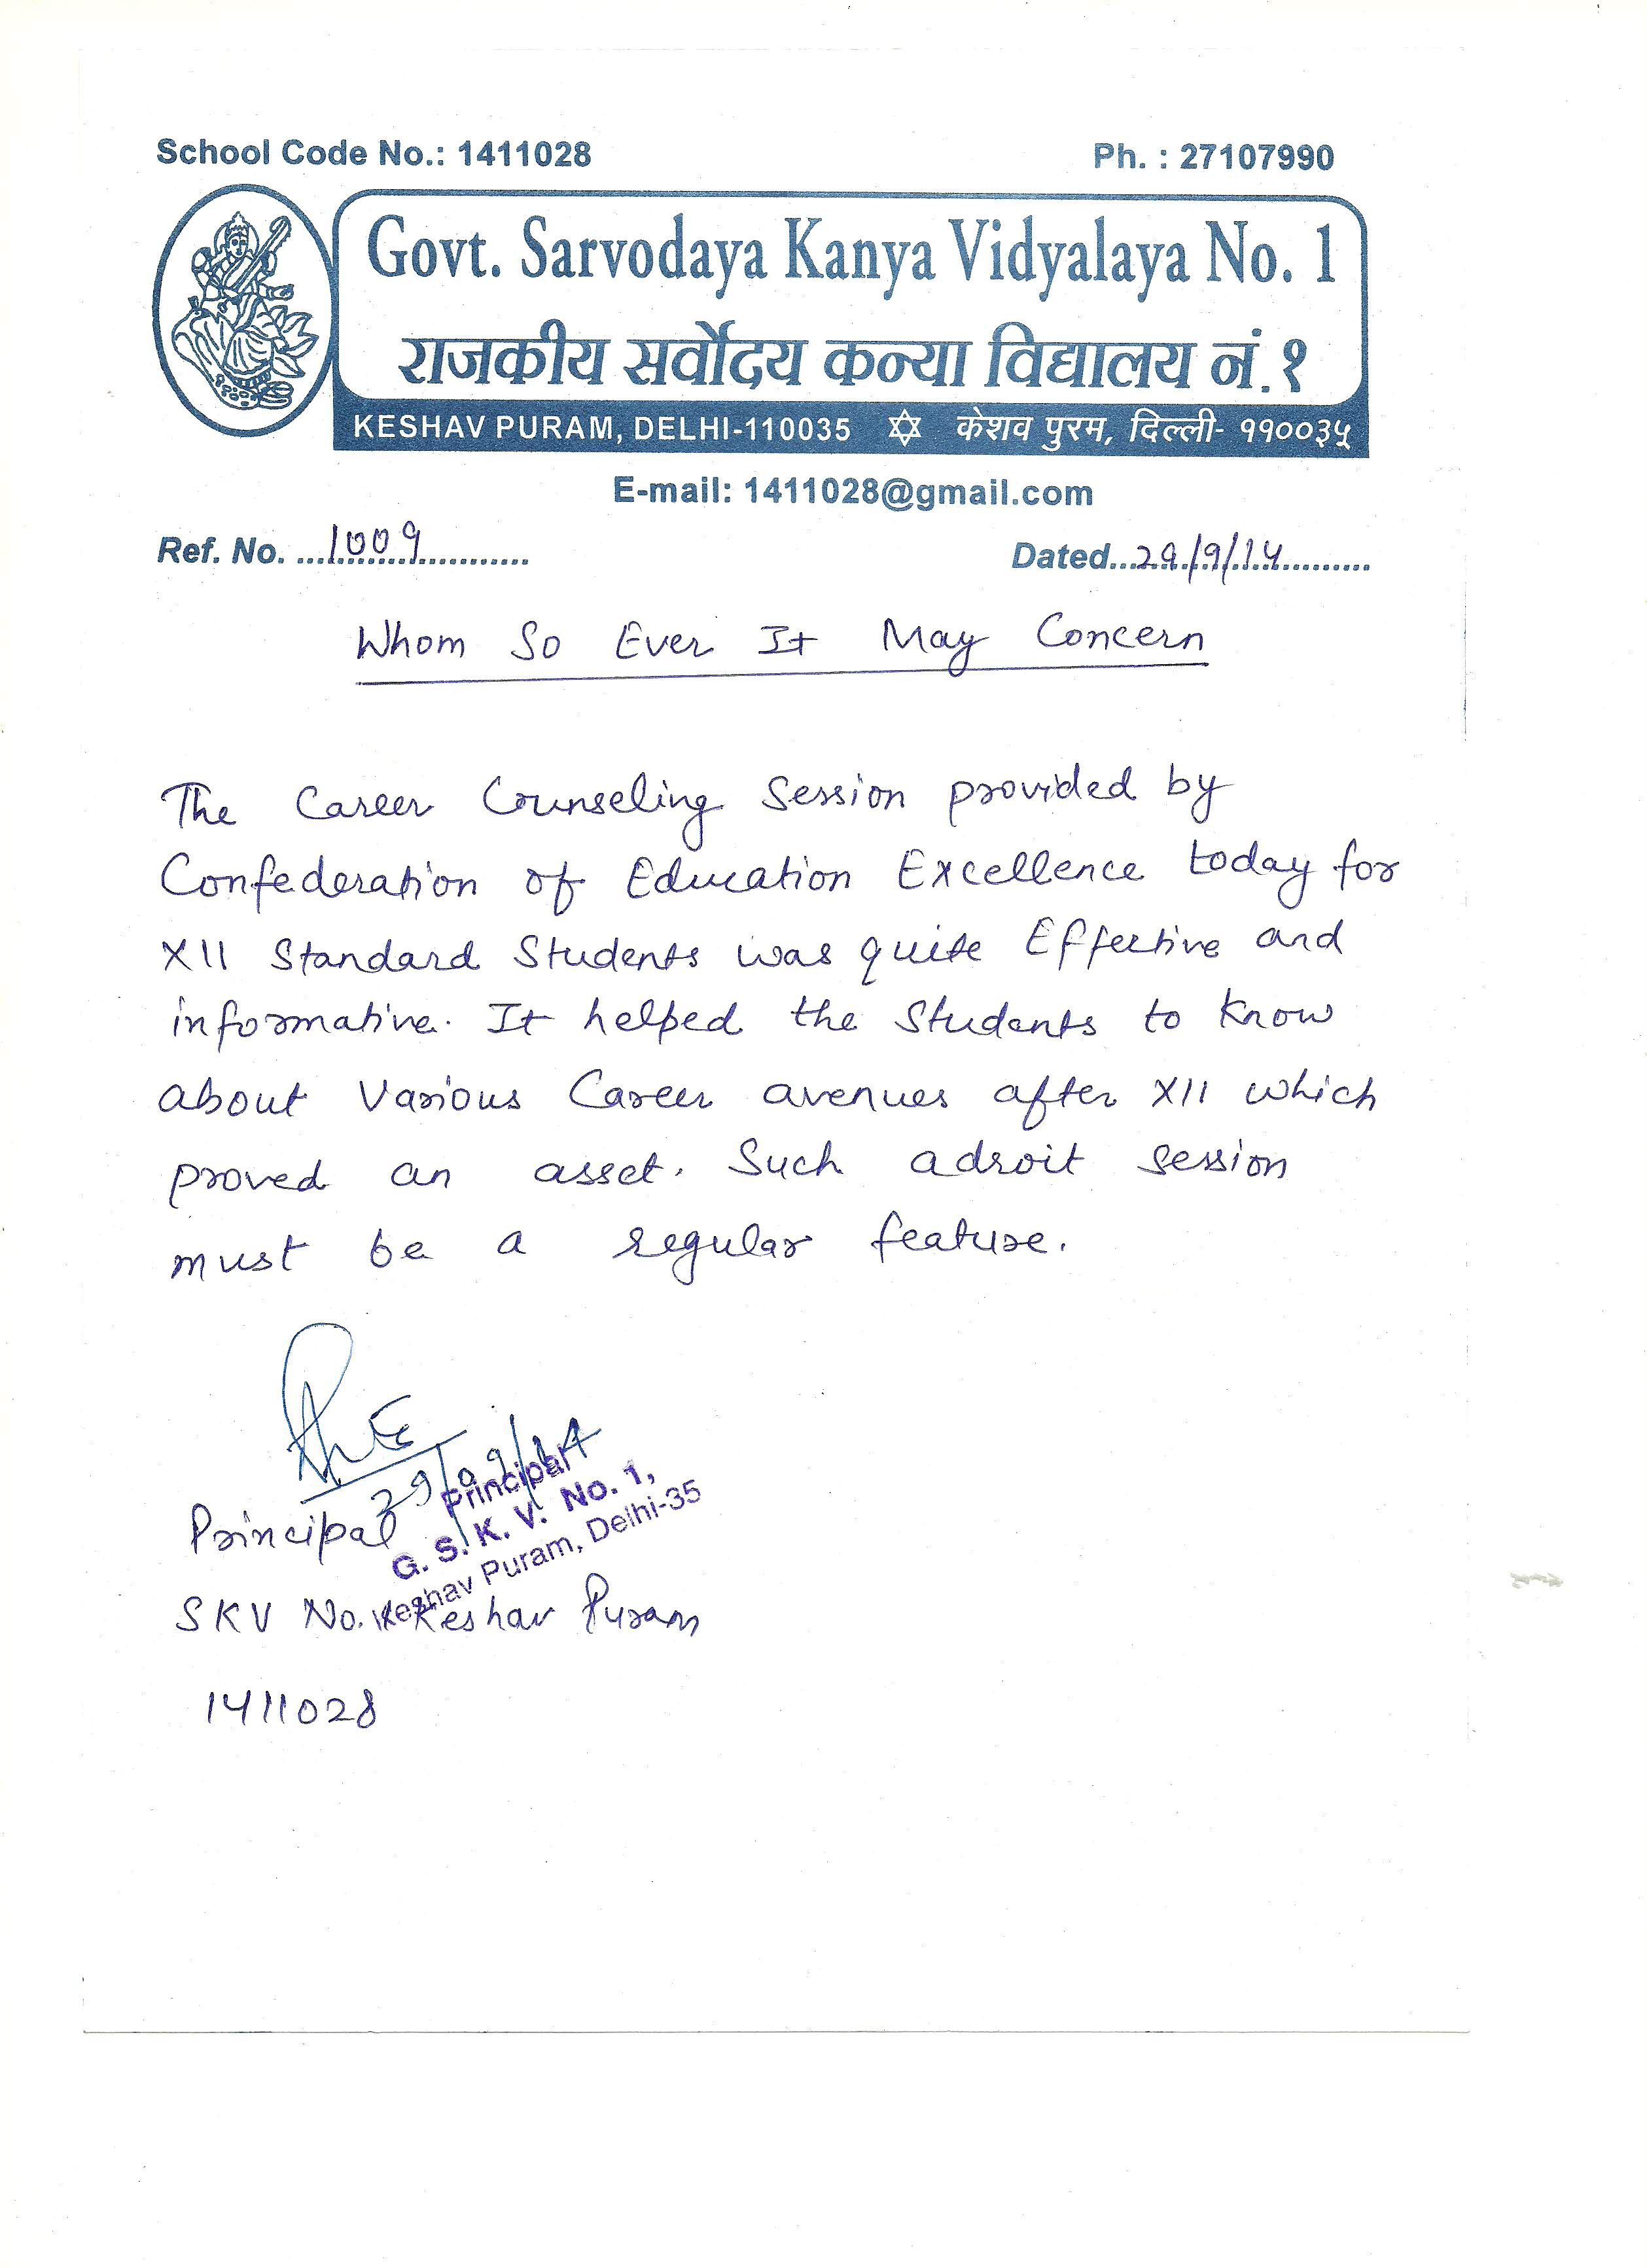 School Code No.: 1411028
Ph. : 27107990
Govt. Sarvodaya Kanya Vidyalaya No. 1
राजकीय सर्वोदय कन्या विद्यालय नं.१
KESHAV PURAM, DELHI-110035 ✡ केशव पुरम, दिल्ली- ११००३५
E-mail: 1411028@gmail.com
Ref. No. ...1009...
Dated...29/9/14...
Whom So Ever It May Concern
The Career Counseling Session provided by
Confederation of Education Excellence today for
XII Standard Students was quite Effective and
informative. It helped the Students to Know
about Various Career avenues after XII which
proved an asset. Such adroit session
must be a regular feature.
29/09/14
Principal
Principal
G. S. K. V. No. 1,
Keshav Puram, Delhi-35
SKV No. 1 Keshav Puram
1411028